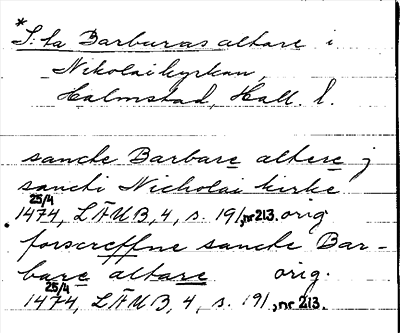 * S:ta Barbaras altare i
Nikolaikyrkan,
Halmstad, Hall. l.
sancte Barbare altere j
sancti Nicholai kirke
25/4
1474, LÄUB, 4, s. 191, nr 213. orig
forscreffne sancte Bar-
bare altare orig.
25/4
1474, LÄUB, 4, s. 191, nr 213.